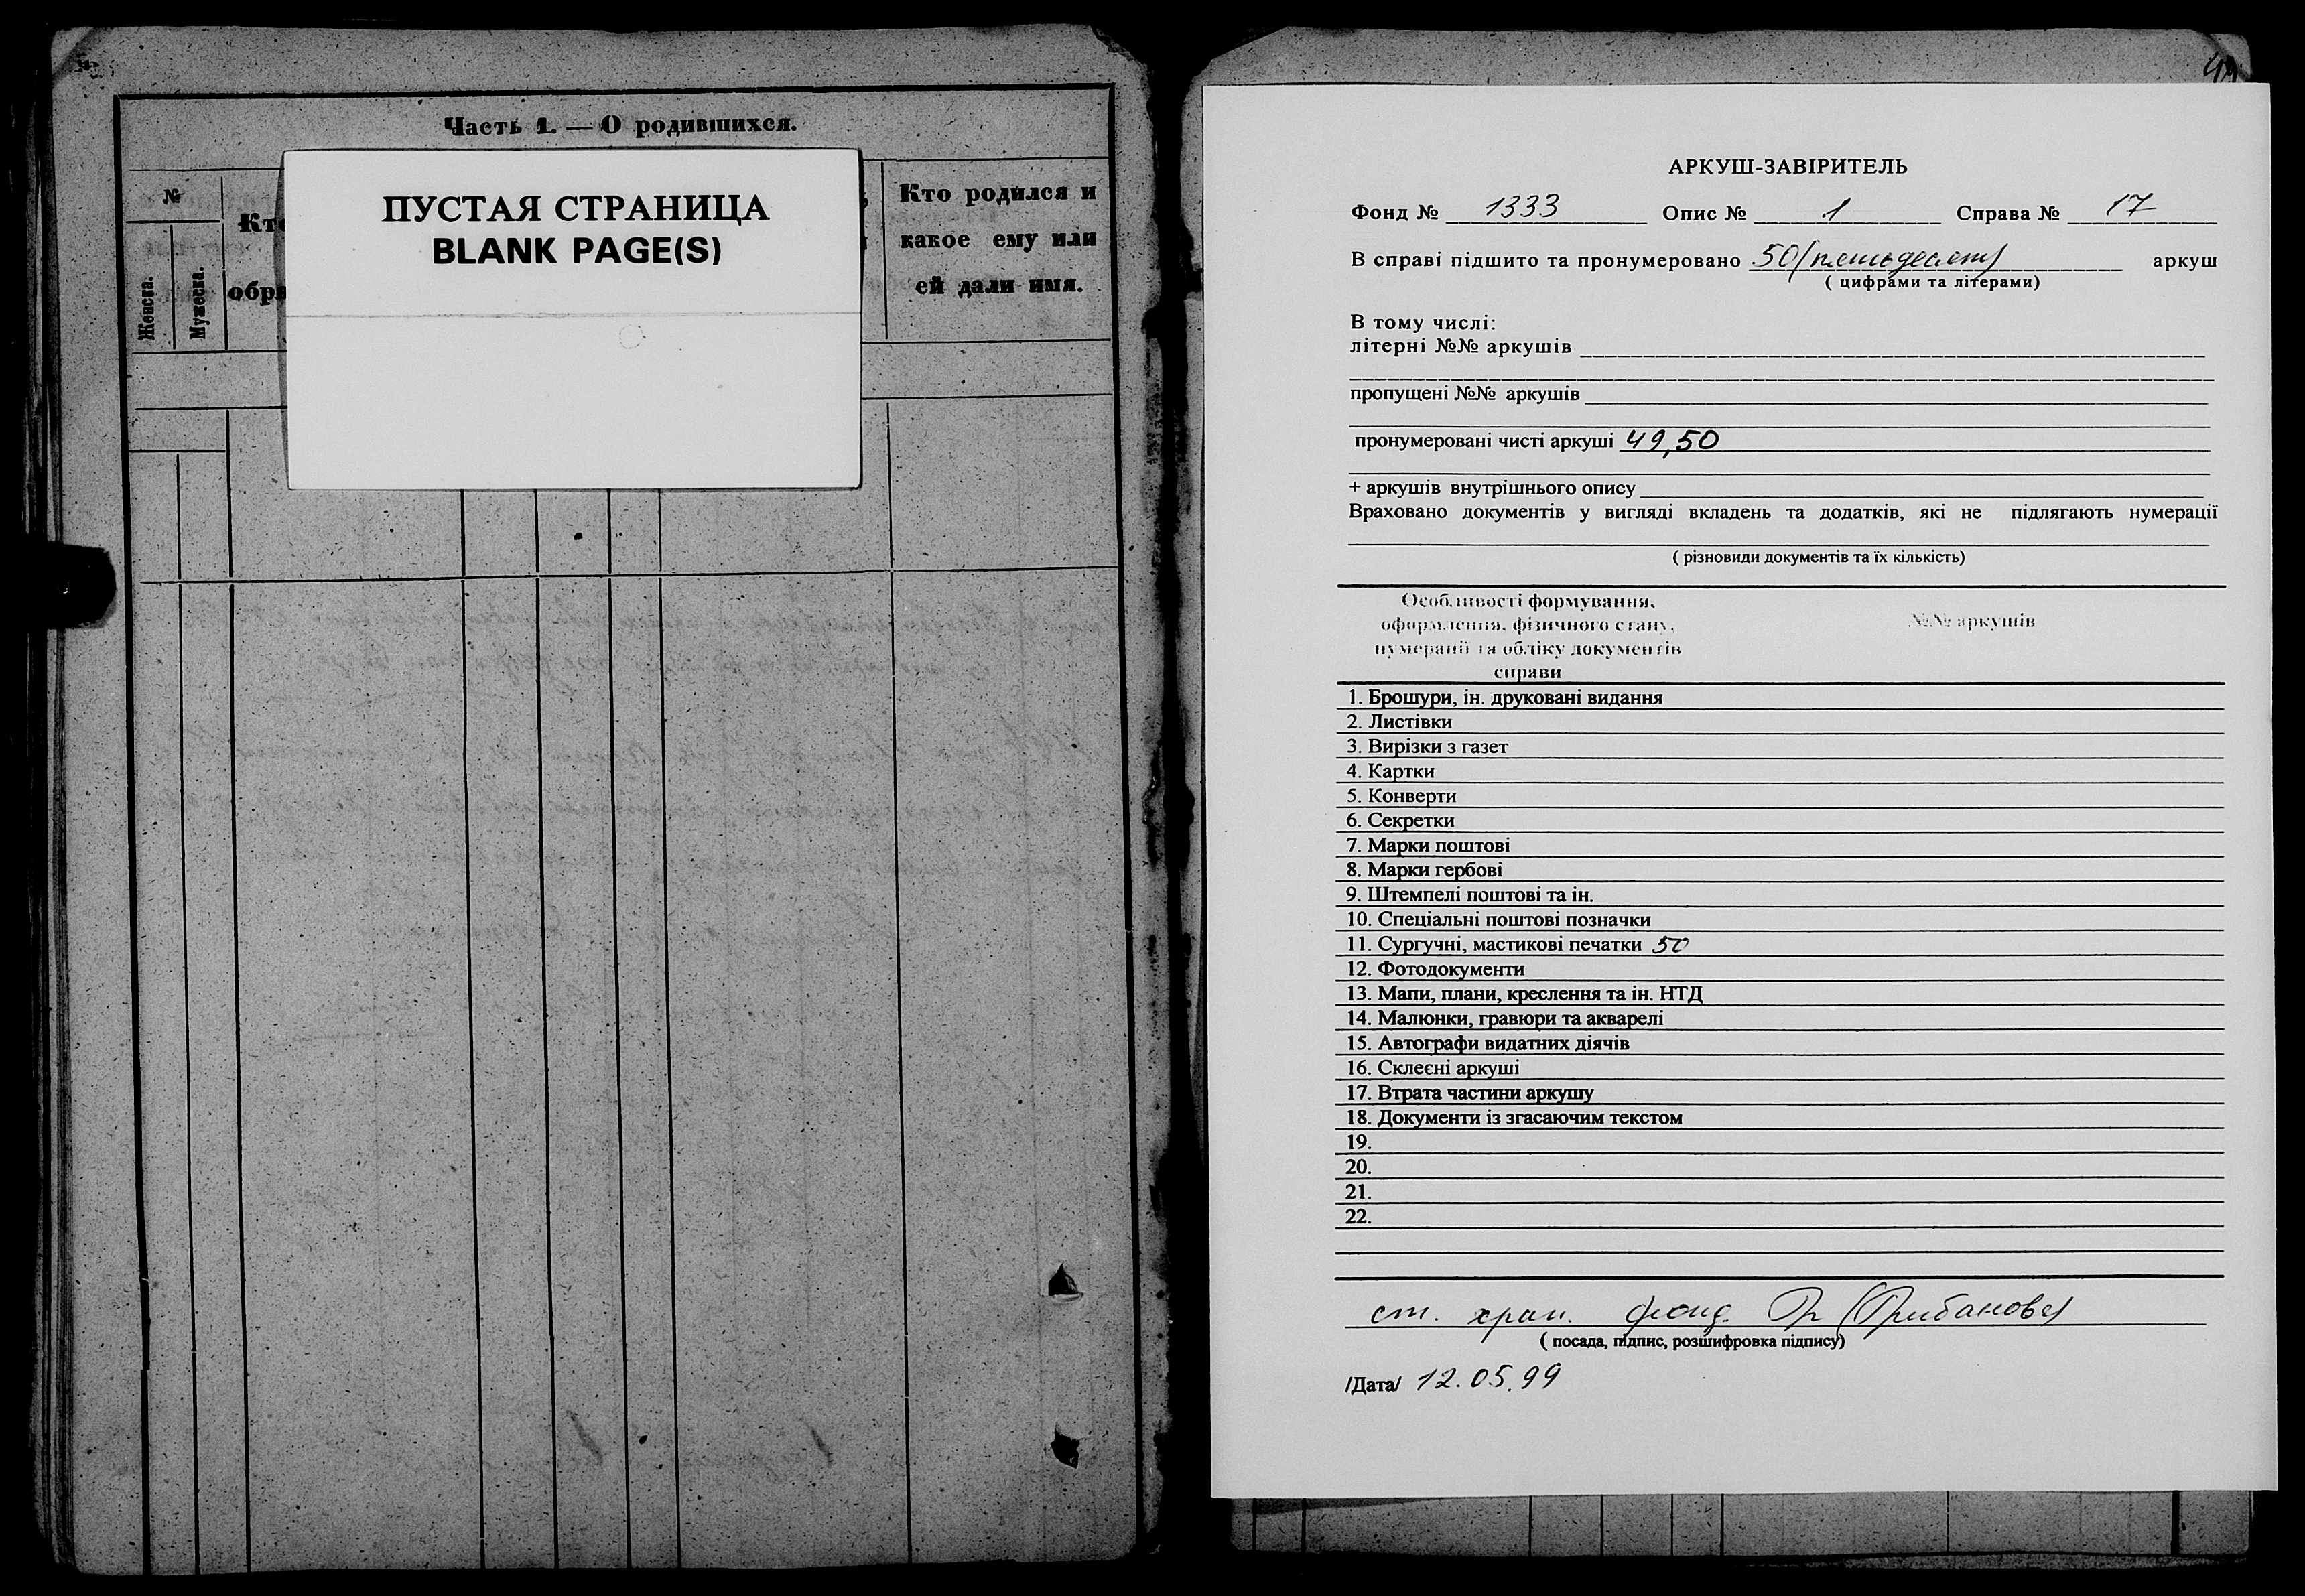 Часть 1. — О родившихся.
№
Женска.
Мужеска.
Кто
обр
ПУСТАЯ СТРАНИЦА
BLANK PAGE(S)
Кто родился и
какое ему или
ей дали имя.
АРКУШ-ЗАВІРИТЕЛЬ
Фонд № 1333 Опис № 1 Справа № 17
В справі підшито та пронумеровано 50 (пятьдесят) аркуш
( цифрами та літерами)
В тому числі:
літерні №№ аркушів
пропущені №№ аркушів
пронумеровані чисті аркуші 49,50
+ аркушів внутрішнього опису
Враховано документів у вигляді вкладень та додатків, які не підлягають нумерації
( різновиди документів та їх кількість)
Особливості формування,
оформлення, фізичного стану,
нумерації та обліку документів
справи
№№ аркушів
1. Брошури, ін. друковані видання
2. Листівки
3. Вирізки з газет
4. Картки
5. Конверти
6. Секретки
7. Марки поштові
8. Марки гербові
9. Штемпелі поштові та ін.
10. Спеціальні поштові позначки
11. Сургучні, мастикові печатки 50
12. Фотодокументи
13. Мапи, плани, креслення та ін. НТД
14. Малюнки, гравюри та акварелі
15. Автографи видатних діячів
16. Склеєні аркуші
17. Втрата частини аркушу
18. Документи із згасаючим текстом
19.
20.
21.
22.
ст. хран. фонд. (Грибанова)
( посада, підпис, розшифровка підпису)
/Дата/ 12.05.99